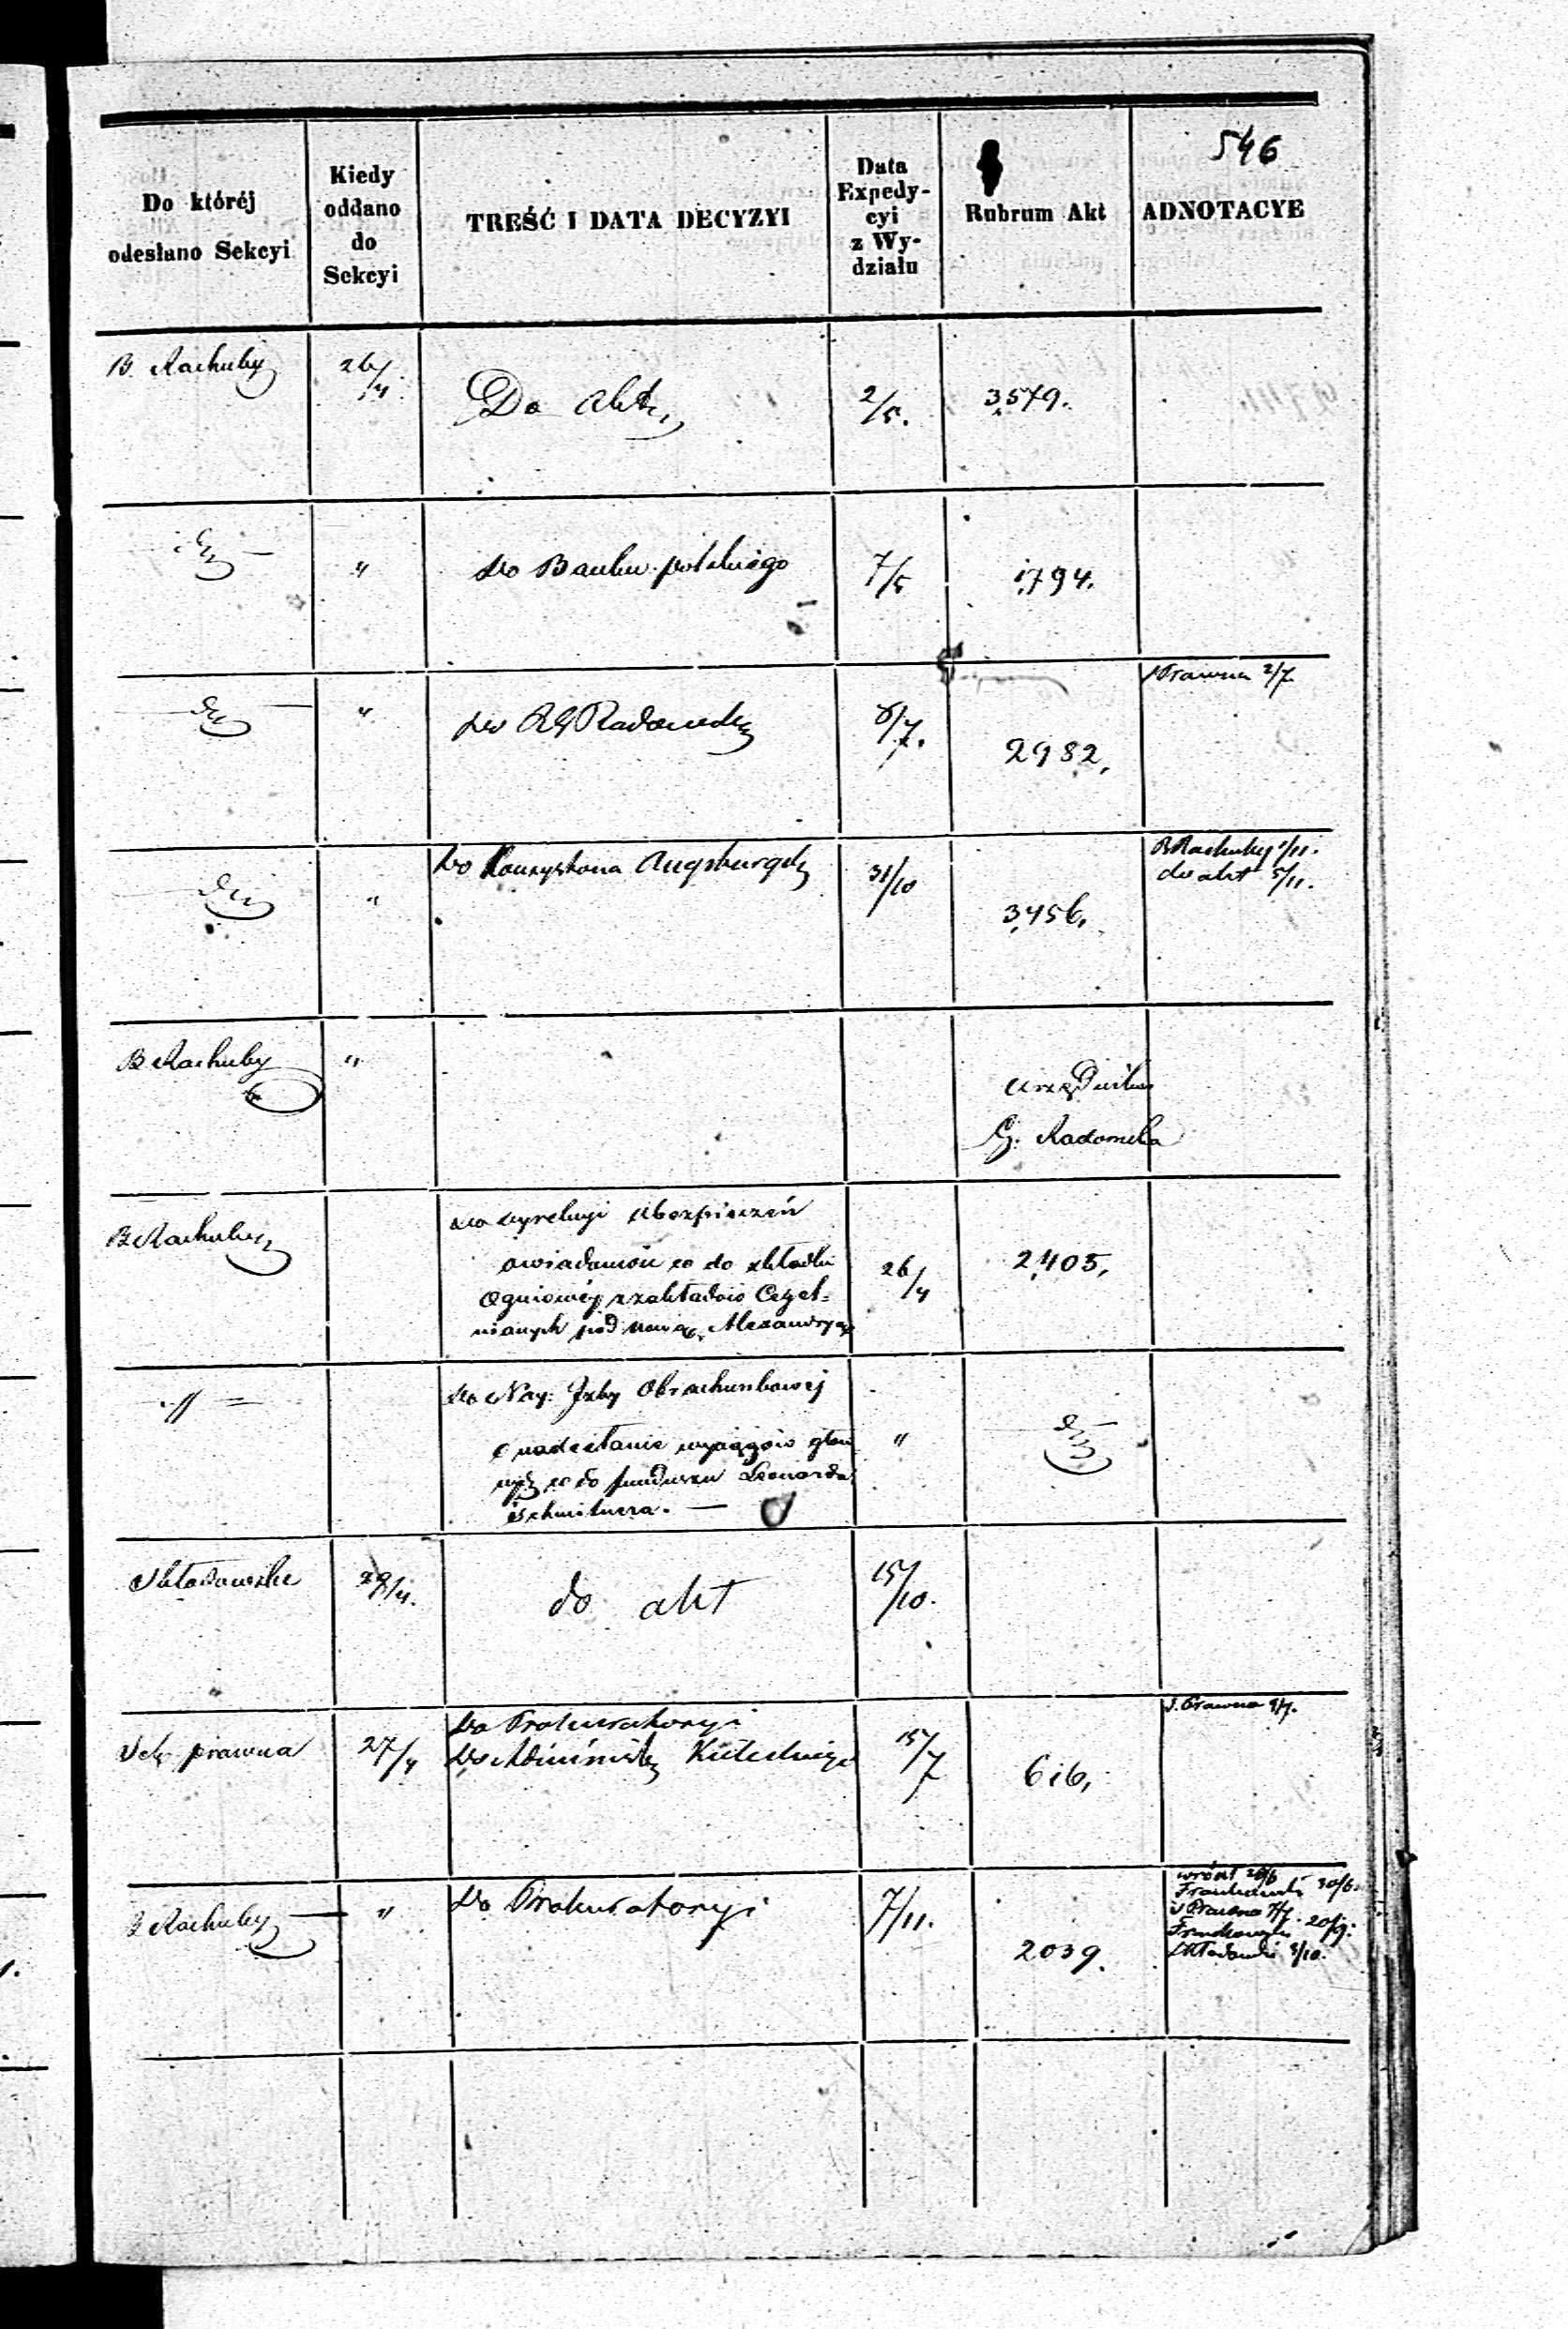 546
Do któréj odesłano Sekcyi
Kiedy oddano do Sekcyi
TREŚĆ I DATA DECYZYI
Data Expedy- cyi z Wy- działu
Rubrum Akt
ADNOTACYE
B. Rachuby
26/4
Do akt
2/5.
3579.
"
Do Banku polskiego
7/5
1794.
"
Do RG Radomsk
6/7.
2982.
Prawna 2/7
"
Do Konsystorza Augsburgsk
31/10
3456.
B Rachuby 1/11.
do akt 5/11.
B Rachuby
"
urzędników
G. Radomska
B Rachuby
Do Dyrekcyi Ubezpieczeń
zawiadomienie co do składki
Ogniowéj z zakładów Cegel=
nianych pod Nową Alexandryą
26/4
2405.
"
Do Nay: Izby Obrachunkowej
o nadesłanie wyciągów
co do funduszu Leonarda
"
Skłodowski
29/4.
do akt
15/10.
Sek. prawna
27/4
Do Prokuratoryi
Do Administr
15/7
616.
S. Prawna 9/7.
B Rachuby
"
Do Prokuratoryi
7/11.
2039.
wrócił 28/6
30/6.
S Prawna 7/7.
20/9.
Skłodowski 3/10.